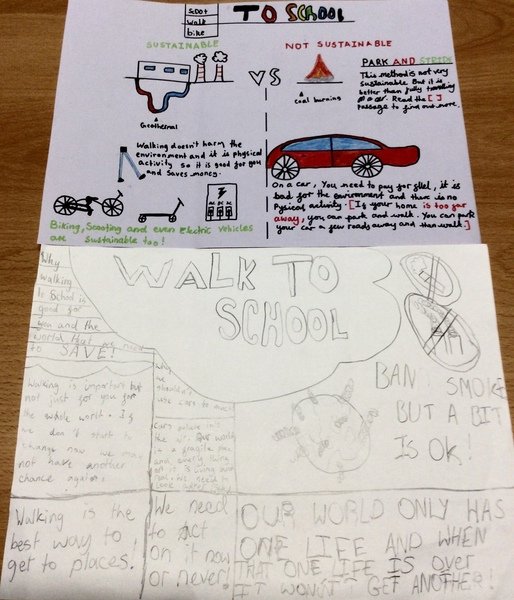 scoot
walk
bike
TO SCHOOL
SUSTAINABLE
VS
NOT SUSTAINABLE
Geothermal
coal burning
PARK AND STRIDE
This method is not very
sustainable. But it is
better than fully travelling
Read the [ ]
passage to find out more.
Walking doesn't harm the
environment and it is physical
activity so it is good for you
and saves money.
Biking, Scooting and even Electric vehicles
are sustainable too!
On a car, You need to pay for fuel, it is
bad for the environment and there is no
Pysical activity. [If your home is too far
away, you can park and walk. You can park
your car a few roads away and then walk.]
WALK TO
SCHOOL
Why
walking
to School is
good for
you and the
world that we need
to SAVE!
Walking is important but
not just for you for
the whole world. If
we don't start to
change now we may
not have another
chance again.
Walking is the
best way to
get to places!
why
we
shouldn't
use cars to much
Cars pollute
the air. Our world
is a fragile place
and every thing
on it is living
We need to
We need
to act
on it now
or never!
BAN SMOKE
BUT A BIT
IS OK!
OUR WORLD ONLY HAS
ONE LIFE AND WHEN
THAT ONE LIFE IS OVER
IT WON'T GET ANOTHER!